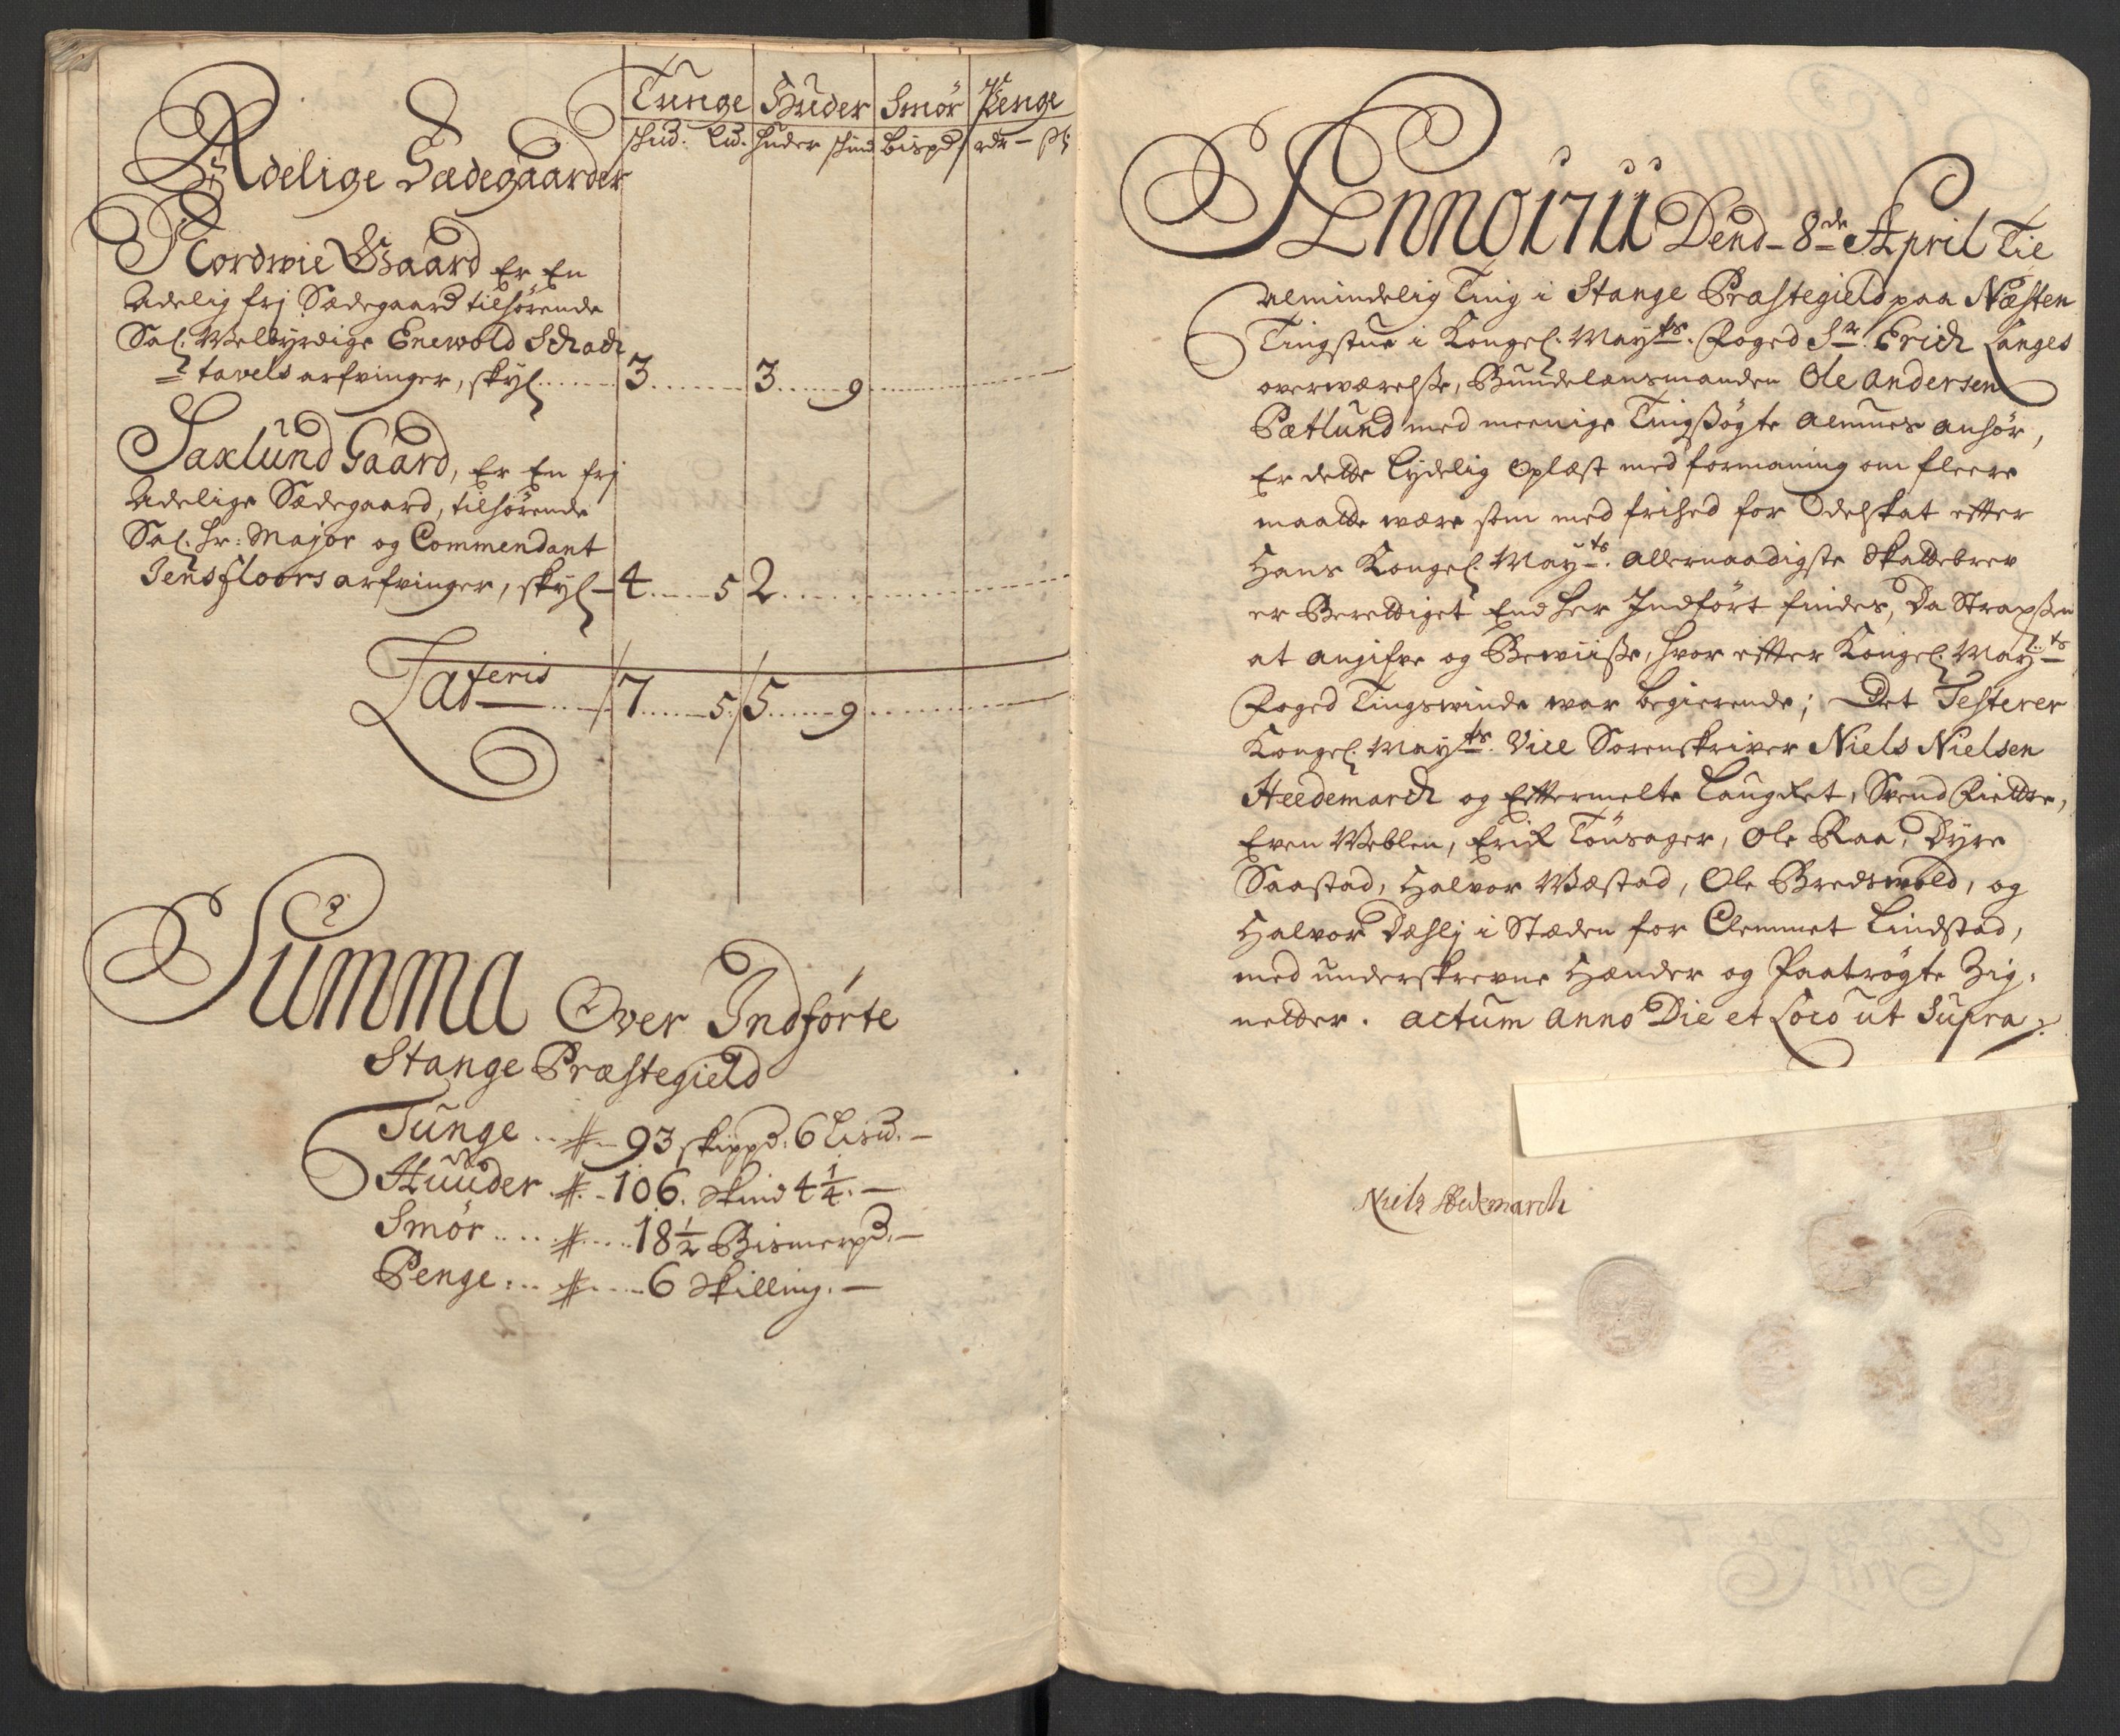 Tunge Huder Smør Penge
skud. Lud. huder skind Bispd rdr - ß
Adelige Sædegaarder
Nordwie Gaard Er En
Adelig frj Sædegaard tilhørende
Sal. Welbyrdige Enewold Schach
= tavels arfvinger, skyl...... 3........ 3..... 9
Saxlund Gaard, Er En frj
Adelige Sædegaard, tilhørende
Sal. Hr: Major og Commendant
Jens floors arfvinger, skyl - 4..... 5 2
Lateris ..... 7...... 5 5..... 9
Summa Over Indførte
Stange Præstegield
Tunge .. 93 skippd: 6 Lisd. -
Huuder .. 106. Skind 4 1/4. -
Smør ..... 18 1/2 Bismerpd. -
Penge ... 6 Skilling. -
Anno 1711 Dend 8de April Til
Almindelig Ting i Stange Præstegield paa Næsten
Tingstue i Kongel: Mayts. Foged Sr. Erich Langes
overværelsse, Bundelænsmanden Ole Andersen
Sætlund med meenige Tingßøgte Almues anhør,
Er dette lydelig Oplæst med formaning om fleere
maatte være som med frihed for Odelskat efter
Hans Kongel. Mayts. allernaadigste Skattebrev
er Berettiget End her Indført findes, da Strax ßen
at angifve og Bewiiße, hvor efter Kongel. Mayts
Foged Tingswinde war begierende; Det Testerer
Kongel. Mayts. Vice Sorenskriver Niels Nielsen
Heedemarch og Eftermelte Laugret, Svend Fiettre,
Even Weblen, Erich Tousager, Ole Raa, Dyre
Saastad, Halvor Wæstad, Ole Bredswold, og
Halvor Dæhlj i Stæden for Clemmet Lindstad,
med underskrevne Hænder og Paatrøgte Zig-
netter. Actum Anno Die et Loco ut Supra
Niels Hedemarch